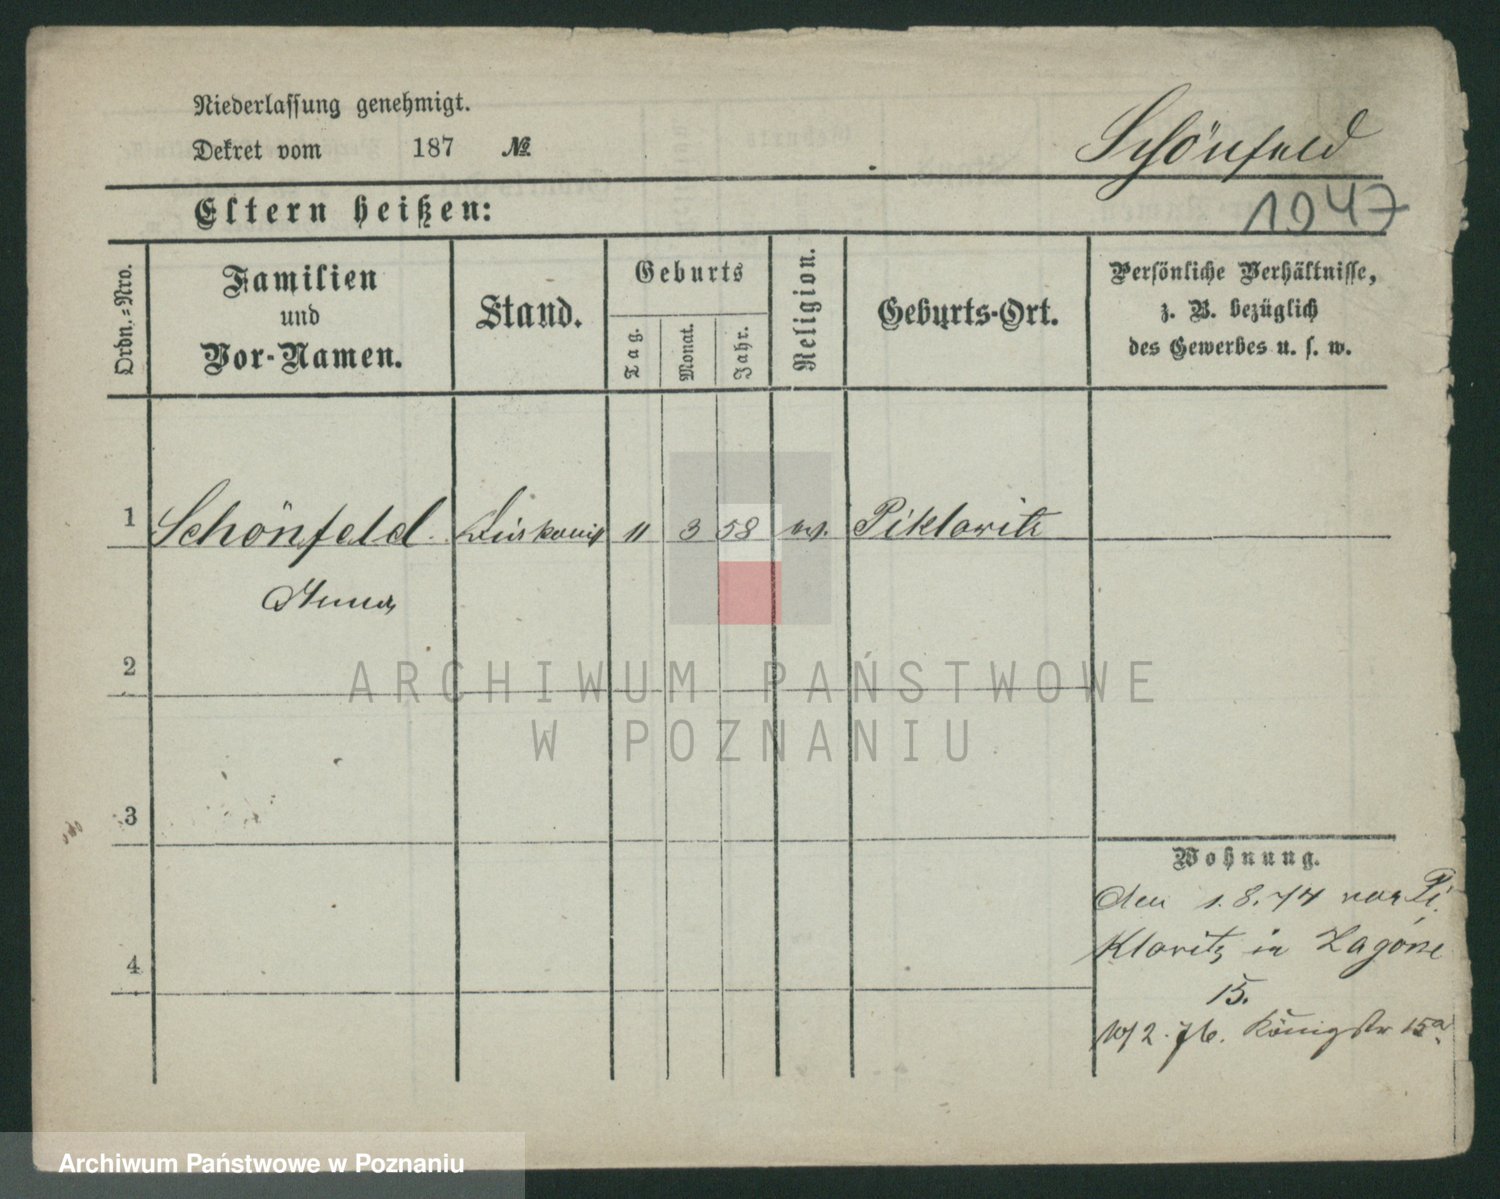 Niederlassung genehmigt.
Dekret vom 187 №
Schönfeld
1947
Eltern heißen:
Ordn.=Nro.
Familien
und
Vor-Namen.
Stand.
Geburts
Tag.
Monat.
Jahr.
Religion.
Geburts-Ort.
Persönliche Verhältnisse,
z. B. bezüglich
des Gewerbes u. s. w.
1 Schönfeld 11 3 58 ev. Piklowitz
Anna
2
3
4
Wohnung.
den 1.8.74 von Pi
klowitz in Zagórze
15.
10/2.76. Königstr 15a.
ARCHIWUM PAŃSTWOWE
W POZNANIU
Archiwum Państwowe w Poznaniu